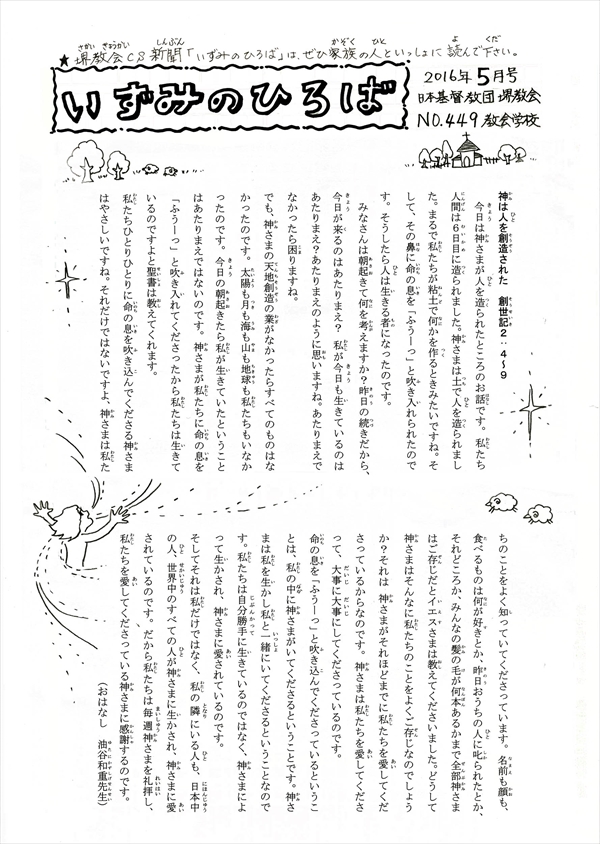 ★堺教会CS新聞「いずみのひろば」は、ぜひ家族の人といっしょに読んで下さい。
いずみのひろば
2016年5月号
日本基督教団堺教会
NO.449 教会学校
神は人を創造された　創世記2：4～9
　今日は神さまが人を造られたところのお話です。私たち
人間は6日目に造られました。神さまは土で人を造られまし
た。まるで私たちが粘土で何かを作るときみたいですね。そ
して、その鼻に命の息を「ふうーっ」と吹き入れられたので
す。そうしたら人は生きる者になったのです。
　みなさんは朝起きて何を考えますか？昨日の続きだから、
今日が来るのはあたりまえ？私が今日も生きているのは
あたりまえ？あたりまえのように思いますね。あたりまえで
なかったら困りますね。
でも、神さまの天地創造の業がなかったらすべてのものはな
かったのです。太陽も月も海も山も地球も私たちもいなか
ったのです。今日の朝起きたら私が生きていたということ
はあたりまえではないのです。神さまが私たちに命の息を
「ふうーっ」と吹き入れてくださったから私たちは生きて
いるのですよと聖書は教えてくれます。
私たちひとりひとりに命の息を吹き込んでくださる神さま
はやさしいですね。それだけではないですよ、神さまは私た
ちのことをよく知っていてくださっています。名前も顔も、
食べるものは何が好きとか、昨日おうちの人に叱られたとか、
それどころか、みんなの髪の毛が何本あるかまで全部神さま
はご存じだとイエスさまは教えてくださいました。どうして
神さまはそんなに私たちのことをよくご存じなのでしょう
か？それは　神さまがそれほどまでに私たちを愛してくだ
さっているからなのです。神さまは私たちを愛してくださ
って、大事に大事にしてくださっているのです。
命の息を「ふうーっ」と吹き込んでくださっているというこ
とは、私の中に神さまがいてくださるということです。神さ
まは私を生かし私と一緒にいてくださるということなので
す。私たちは自分勝手に生きているのではなく、神さまによ
って生かされ、神さまに愛されているのです。
そしてそれは私だけではなく、私の隣にいる人も、日本中
の人、世界中のすべての人が神さまに生かされ、神さまに愛
されているのです。だから私たちは毎週神さまを礼拝し、
私たちを愛してくださっている神さまに感謝するのです。
（おはなし　油谷和重先生）